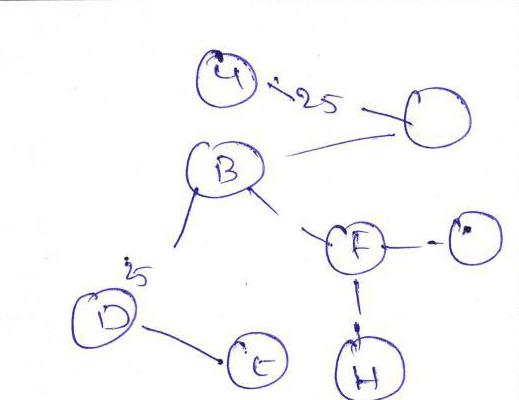 4
25
B
F
25
D
E
H